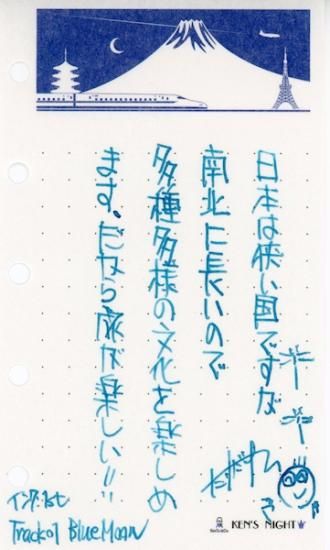 日本は狭い国ですが
南北に長いので
多種多様の文化を楽しめ
ます、だから旅が楽しい!!
インク:1st
Track01 BlueMoon
KEN'S NIGHT